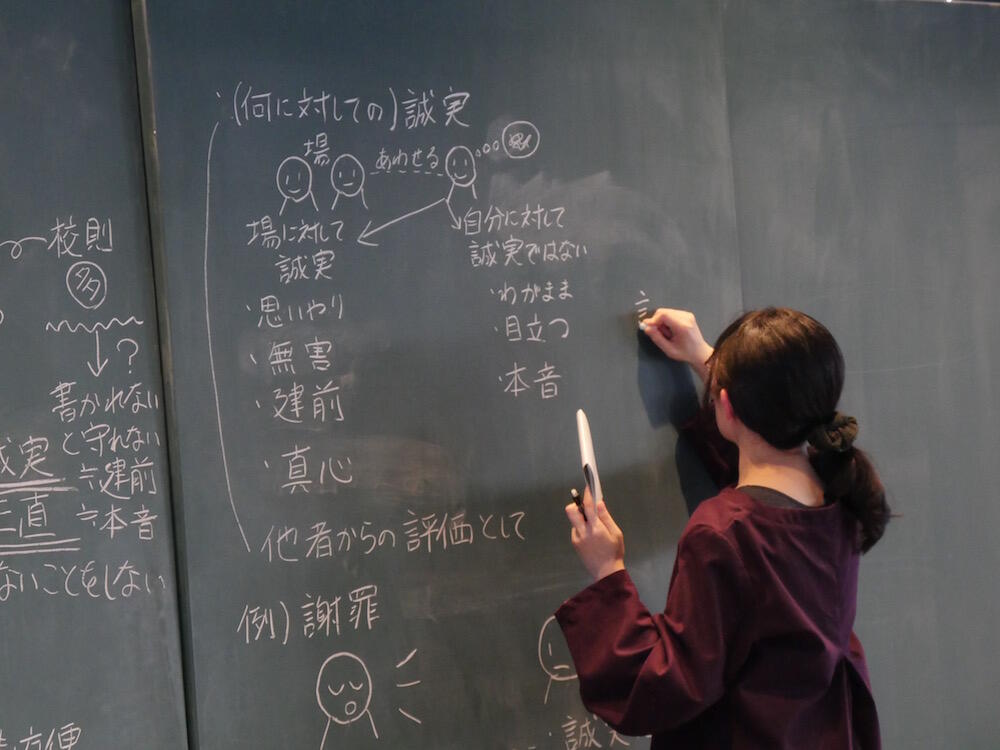 校則
多
?
書かれない
と守れない
≒建前
≒本音
実
直
ないことをしない
(何に対しての)誠実
場
あわせる
場に対して
誠実
・思いやり
・無害
・建前
・真心
自分に対して
誠実ではない
・わがまま
・目立つ
・本音
他者からの評価として
例)謝罪
誠実